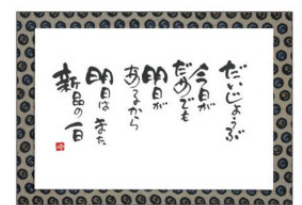 だいじょうぶ
今日が
だめでも
明日が
あるから
明日は また
新品の一日